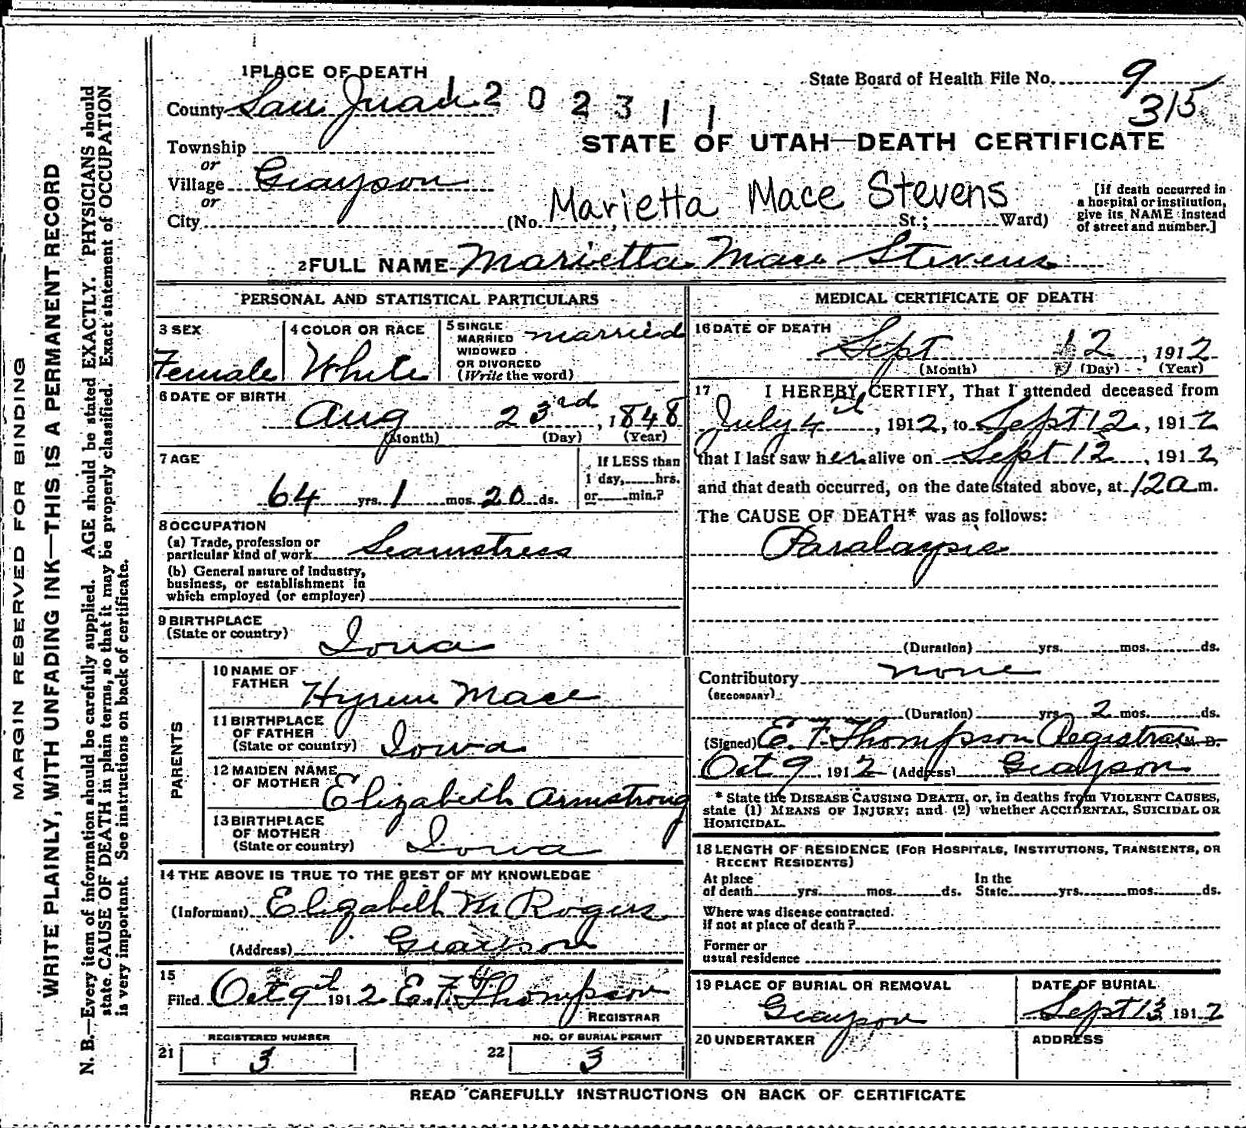 MARGIN RESERVED FOR BINDING
WRITE PLAINLY, WITH UNFADING INK—THIS IS A PERMANENT RECORD
N. B.—Every item of information should be carefully supplied. AGE should be stated EXACTLY. PHYSICIANS should
state CAUSE OF DEATH in plain terms, so that it may be properly classified. Exact statement of OCCUPATION
is very important. See instructions on back of certificate.
1 PLACE OF DEATH
State Board of Health File No. 9
315
County San Juan 1202311
STATE OF UTAH—DEATH CERTIFICATE
Township
or
Village Grayson
or
City (No. Marietta Mace Stevens St.; Ward)
[If death occurred in
a hospital or institution,
give its NAME instead
of street and number.]
2 FULL NAME Marietta Mace Stevens
PERSONAL AND STATISTICAL PARTICULARS
3 SEX
Female
4 COLOR OR RACE
White
5 SINGLE
MARRIED
WIDOWED
OR DIVORCED
(Write the word)
married
6 DATE OF BIRTH
Aug 23rd, 1848
(Month) (Day) (Year)
7 AGE
64 yrs. 1 mos. 20 ds.
If LESS than
1 day, hrs.
or min.?
8 OCCUPATION
(a) Trade, profession or
particular kind of work Seamstress
(b) General nature of Industry,
business, or establishment in
which employed (or employer)
9 BIRTHPLACE
(State or country) Iowa
PARENTS
10 NAME OF
FATHER Hyrum Mace
11 BIRTHPLACE
OF FATHER
(State or country) Iowa
12 MAIDEN NAME
OF MOTHER Elizabeth Armstrong
13 BIRTHPLACE
OF MOTHER
(State or country) Iowa
14 THE ABOVE IS TRUE TO THE BEST OF MY KNOWLEDGE
(Informant) Elizabeth M Rogers
(Address) Grayson
15
Filed Oct 9th 1912 E. F. Thompson
REGISTRAR
REGISTERED NUMBER
21 3
NO. OF BURIAL PERMIT
22 3
MEDICAL CERTIFICATE OF DEATH
16 DATE OF DEATH
Sept 12, 1912
(Month) (Day) (Year)
17 I HEREBY CERTIFY, That I attended deceased from
July 4th, 1912, to Sept 12, 1912
that I last saw her alive on Sept 12, 1912,
and that death occurred, on the date stated above, at 12a m.
The CAUSE OF DEATH* was as follows:
Paralaysis
(Duration) yrs. mos. ds.
Contributory none
(SECONDARY)
(Duration) yrs. 2 mos. ds.
(Signed) E. F. Thompson Registrar M. D.
Oct 9, 1912 (Address) Grayson
* State the DISEASE CAUSING DEATH, or, in deaths from VIOLENT CAUSES,
state (1) MEANS OF INJURY; and (2) whether ACCIDENTAL, SUICIDAL OR
HOMICIDAL.
18 LENGTH OF RESIDENCE (FOR HOSPITALS, INSTITUTIONS, TRANSIENTS, OR
RECENT RESIDENTS)
At place
of death yrs. mos. ds.
In the
State yrs. mos. ds.
Where was disease contracted.
if not at place of death?
Former or
usual residence
19 PLACE OF BURIAL OR REMOVAL
Grayson
DATE OF BURIAL
Sept 13 1912
20 UNDERTAKER
ADDRESS
READ CAREFULLY INSTRUCTIONS ON BACK OF CERTIFICATE